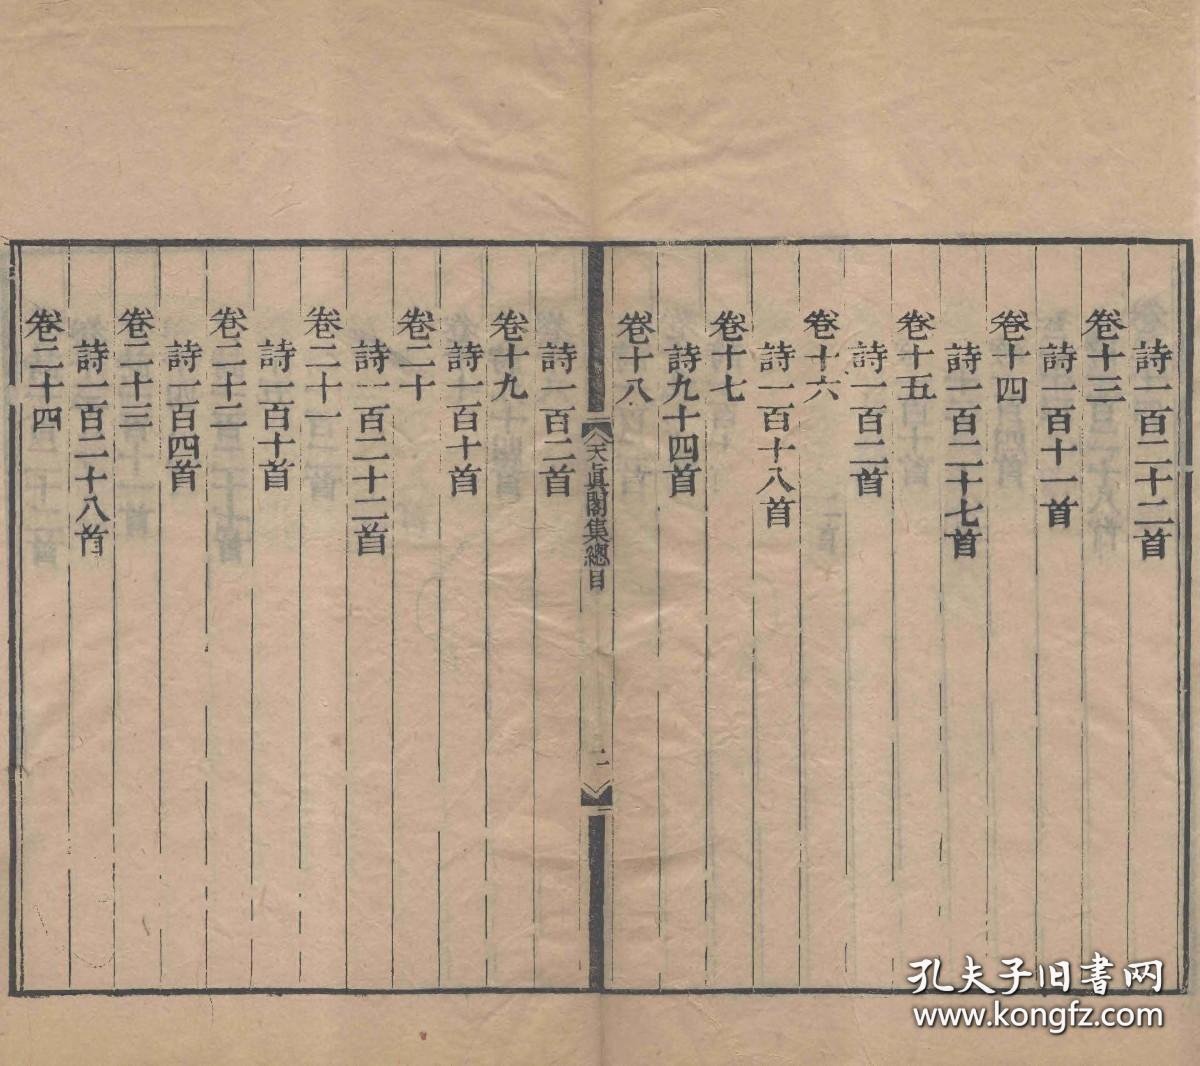 詩一百二十二首
卷十三
詩一百十一首
卷十四
詩一百二十七首
卷十五
詩一百二首
卷十六
詩一百十八首
卷十七
詩九十四首
卷十八
天眞閣集總目
二
詩一百二首
卷十九
詩一百十首
卷二十
詩一百二十二首
卷二十一
詩一百十首
卷二十二
詩一百四首
卷二十三
詩一百二十八首
卷二十四
孔夫子旧书网
www.kongfz.com